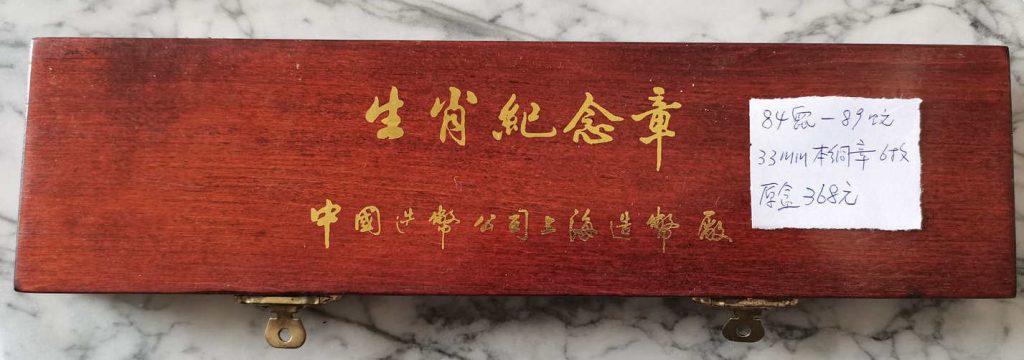 生肖紀念章
中國造幣公司上海造幣廠
84鼠-89蛇
33mm本铜章6枚
原盒368元